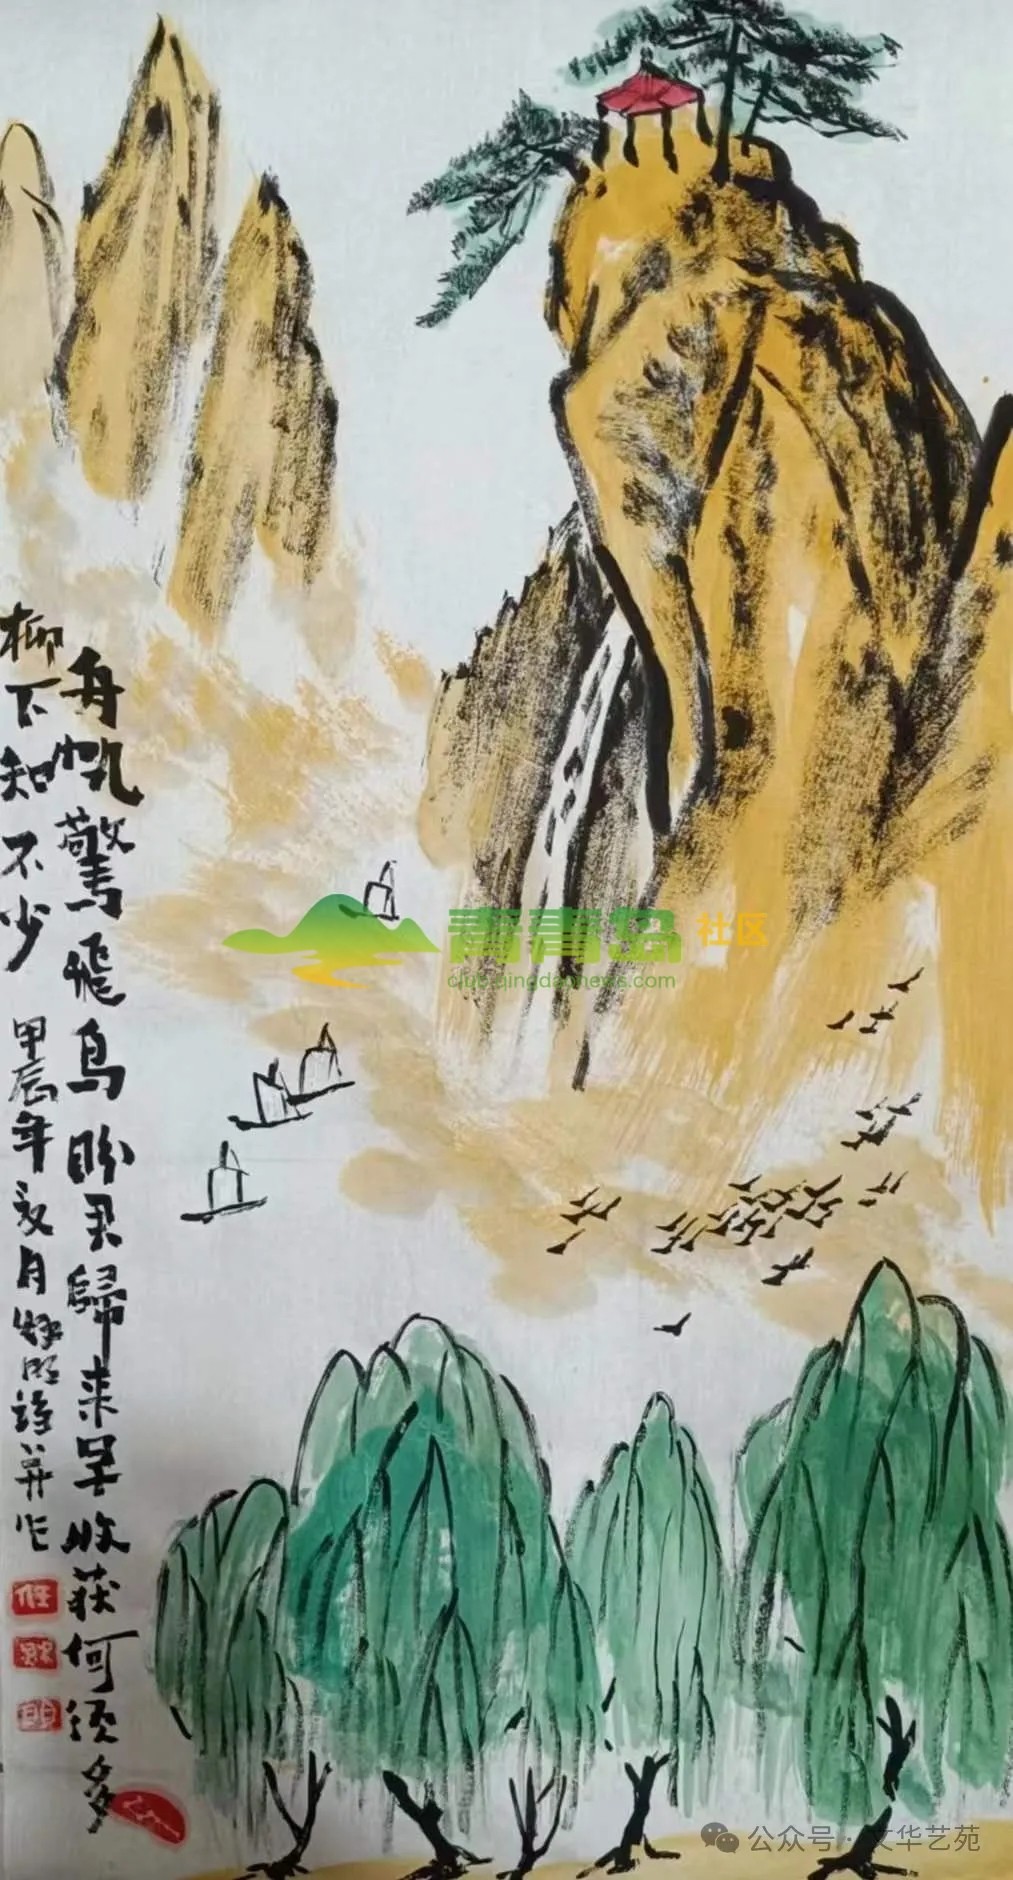 舟帆驚飛鳥盼君歸来早收获何须多
柳下知不少
甲辰年
月
诗并作
青青岛 社区
club.qingdaonews.com
公众号 · 文华艺苑